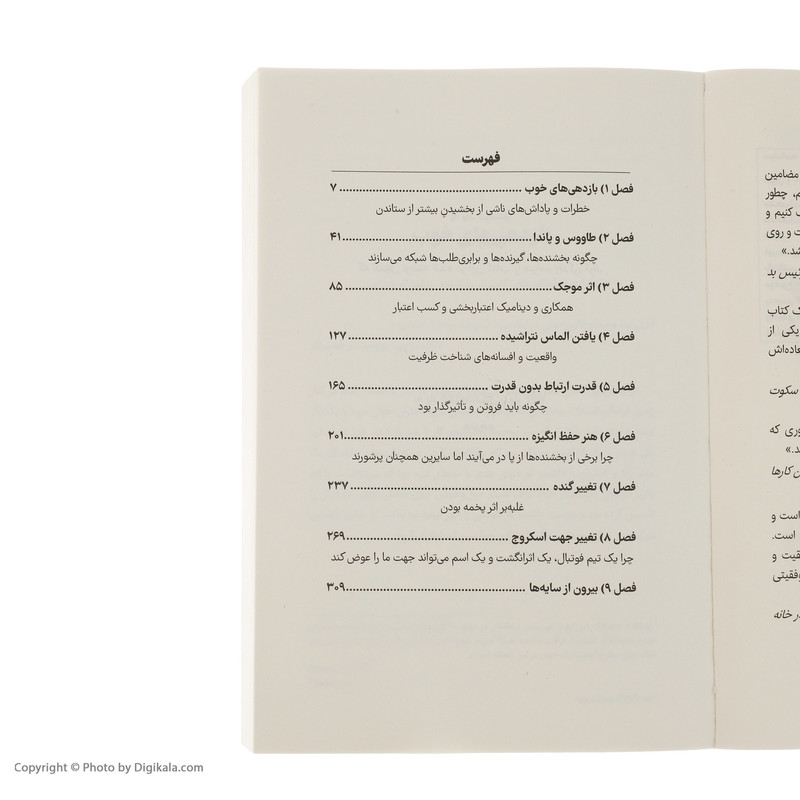 فهرست
فصل ۱) بازدهی‌های خوب ........................................................ ۷
خطرات و پاداش‌های ناشی از بخشیدنِ بیشتر از ستاندن
فصل ۲) طاووس و پاندا ........................................................ ۴۱
چگونه بخشنده‌ها، گیرنده‌ها و برابری‌طلب‌ها شبکه می‌سازند
فصل ۳) اثر موجک ........................................................ ۸۵
همکاری و دینامیک اعتباربخشی و کسب اعتبار
فصل ۴) یافتن الماس نتراشیده ........................................................ ۱۲۷
واقعیت و افسانه‌های شناخت ظرفیت
فصل ۵) قدرت ارتباط بدون قدرت ........................................................ ۱۶۵
چگونه باید فروتن و تأثیرگذار بود
فصل ۶) هنر حفظ انگیزه ........................................................ ۲۰۱
چرا برخی از بخشنده‌ها از پا در می‌آیند اما سایرین همچنان پرشورند
فصل ۷) تغییر گنده ........................................................ ۲۳۷
غلبه‌بر اثر پخمه بودن
فصل ۸) تغییر جهت اسکروج ........................................................ ۲۶۹
چرا یک تیم فوتبال، یک اثرانگشت و یک اسم می‌تواند جهت ما را عوض کند
فصل ۹) بیرون از سایه‌ها ........................................................ ۳۰۹
مضامین
چطور
کنیم و
و روی
شد.»
رئیس بد
کتاب
یکی از
سکوت
وری که
د.»
کارها
است و
است.
و
در خانه
Copyright © Photo by Digikala.com